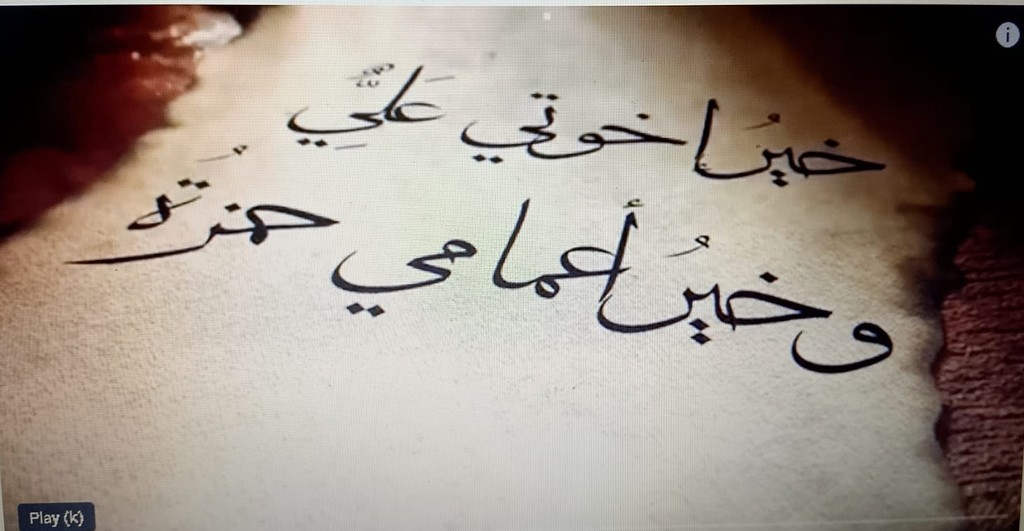 خيرُ اخوتي عَليِّ
وخيرُ أعمامي حمزةُ
Play (k)